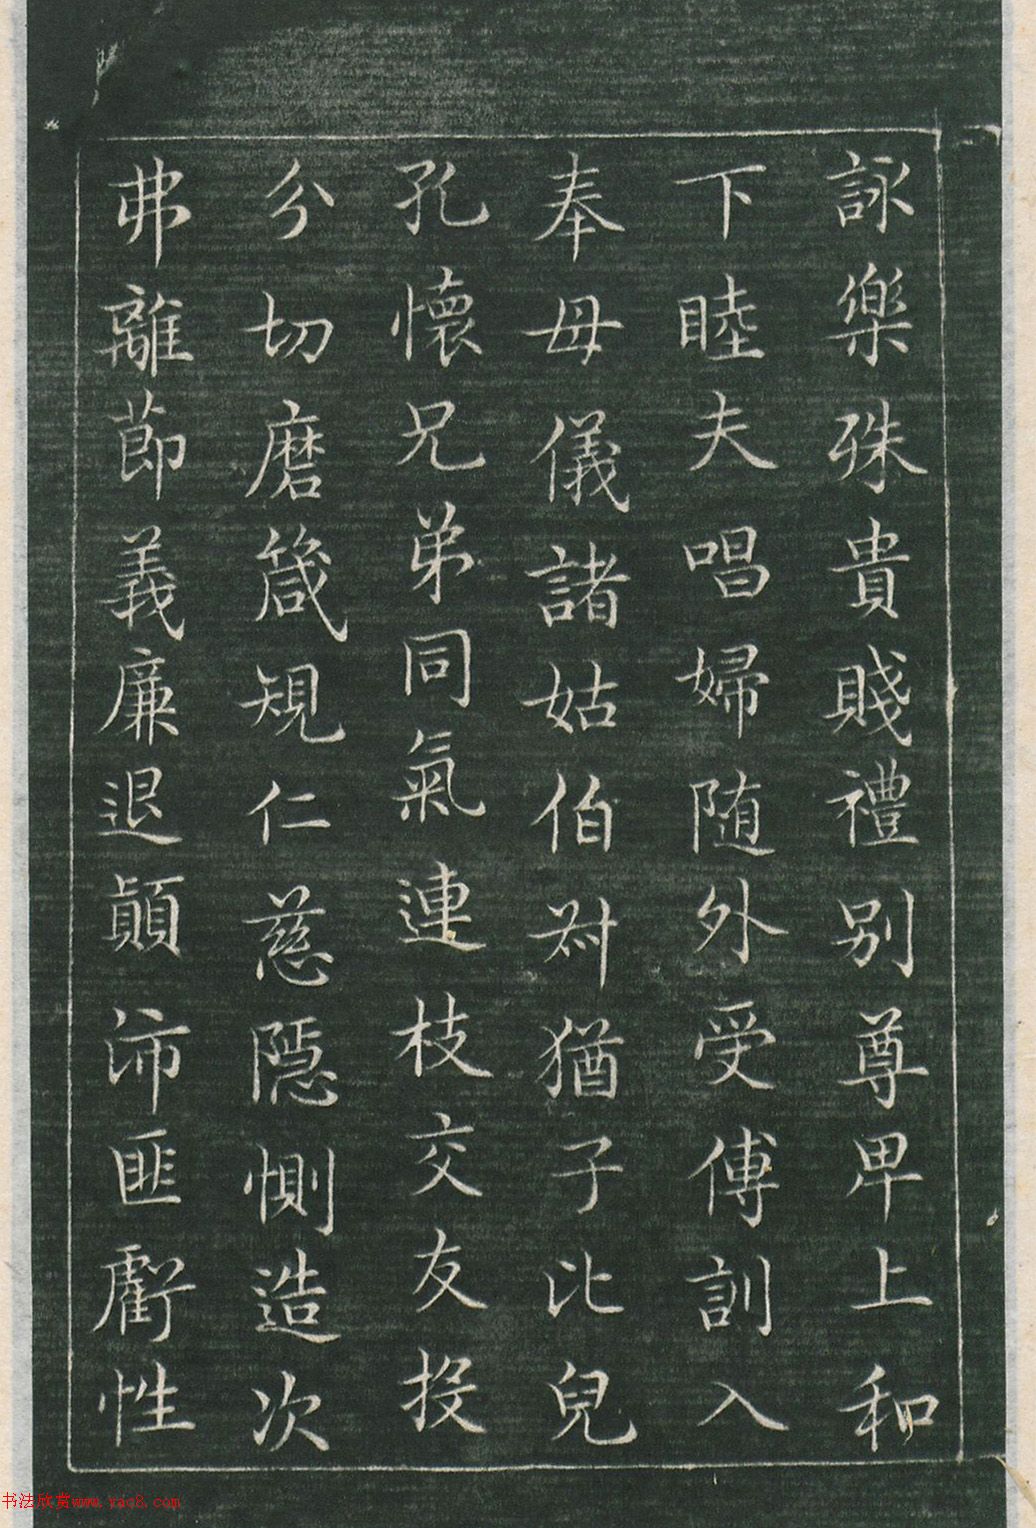 詠樂殊貴賤禮別尊卑上和
下睦夫唱婦随外受傅訓入
奉母儀諸姑伯叔猶子比兒
孔懷兄弟同氣連枝交友投
分切磨箴規仁慈隱惻造次
弗離節義廉退顛沛匪虧性
书法欣赏www.yac8.com